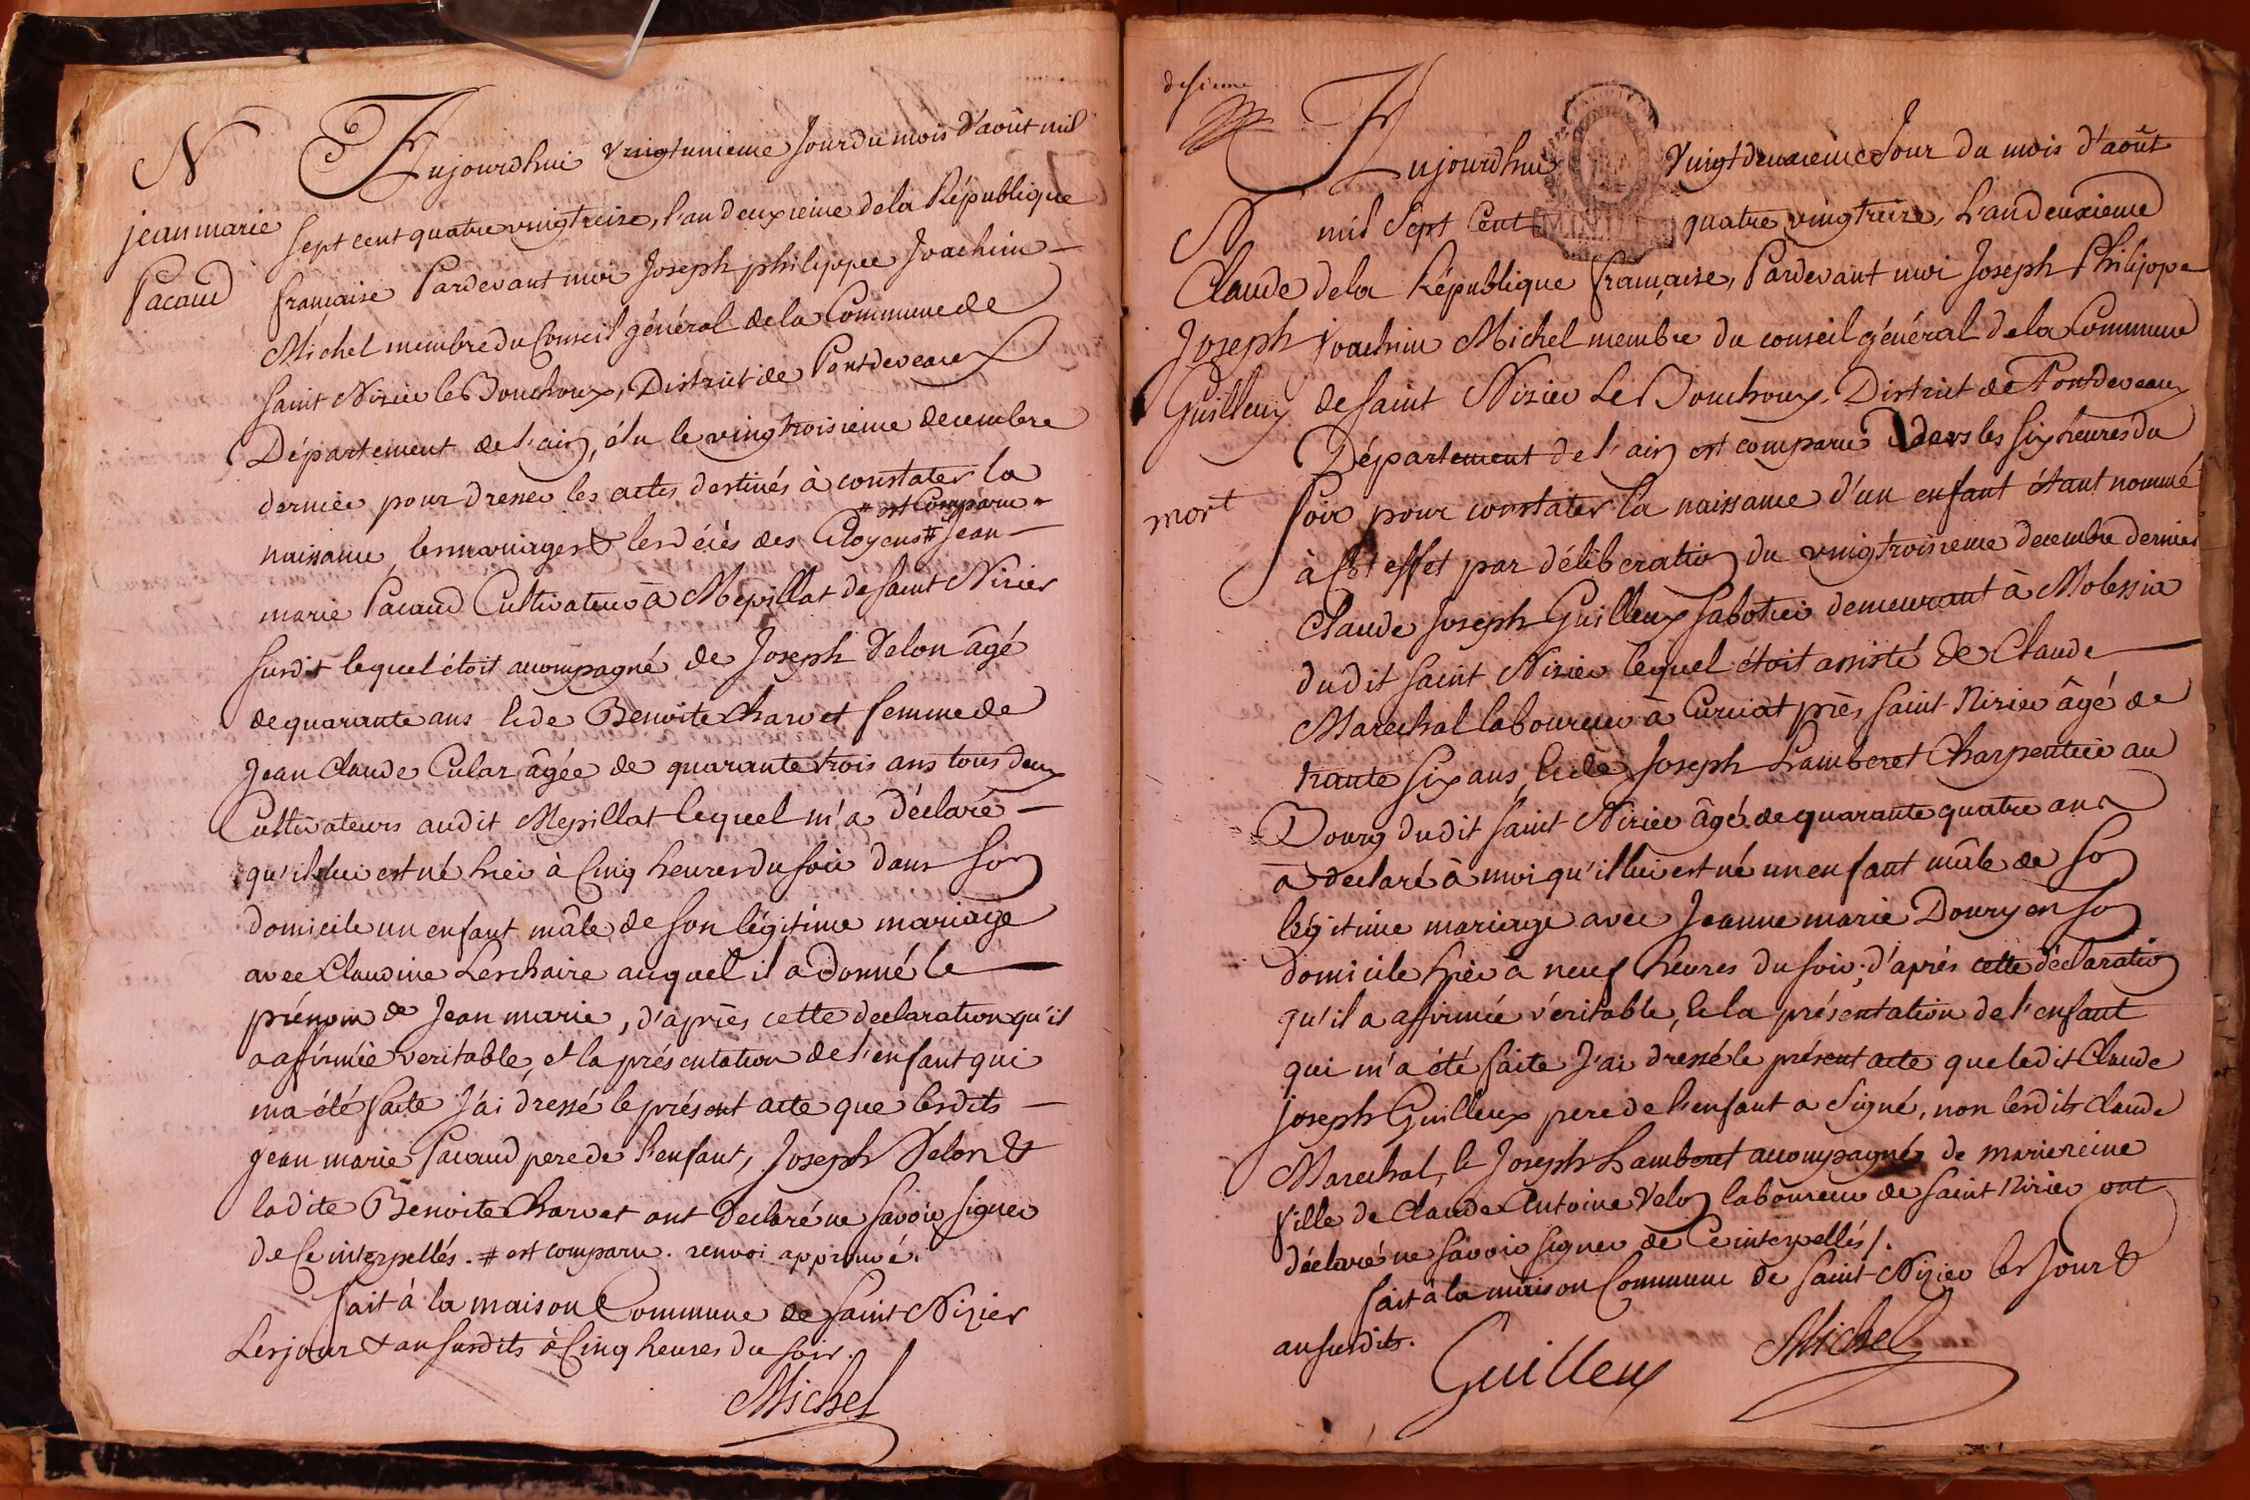 N
jean marie
Pacaud
Aujourdhui vingtunieme Jour du mois d'août mil
sept cent quatre vingt treize, l'an deuxieme de la République
française Pardevant moi Joseph philippe Joachim
Michel membre du Conseil général de la Commune de
saint Nizier le Bouchoux, District de Pontdevaux
Département de l'ain, élu le vingtroisieme decembre
dernier pour dresser les actes destinés à constater la
# est Comparu #
naissance, les mariages & les décès des Citoyens # Jean
marie Pacaud Cultivateur à Mépillat de saint Nizier
susdit lequel étoit accompagné de Joseph Velon âgé
de quarante ans & de Benoite Charvet femme de
Jean Claude Cular âgée de quarante trois ans tous deux
Cultivateurs audit Mépillat lequel m'a déclaré
qu'il lui est né hier à Cinq heures du soir dans son
domicile un enfant mâle de son légitime mariage
avec Claudine Lerchaire auquel il a donné le
prénom de Jean marie, d'après cette declaration qu'il
a affirmée veritable, et la présentation de l'enfant qui
ma été faite J'ai dressé le présent acte que lesdits
jean marie Pacaud pere de l'enfant, Joseph Velon &
ladite Benoite Charvet ont declaré ne savoir signer
de Ce interpellés. # est comparu. renvoi approuvé.
fait à la maison Commune de saint Nizier
Les jour & an susdits à Cinq heures du soir.
Michel
N
Claude
Joseph
Guilleux
mort
Aujourdhui vingt deuxieme Jour du mois d'août
mil sept Cent quatre vingt treize, L'an deuxieme
de la République française, Pardevant moi Joseph Philippe
Joachim Michel membre du conseil général de la Commune
de saint Nizier Le Bouchoux, District de Pontdevaux
Département de l'ain est comparu dans les six heures du
soir pour constater la naissance d'un enfant étant nommé
à Cet effet par délibération du vingtroisieme decembre dernier
Claude Joseph Guilleux sabotier demeurant à Molessia
dudit saint Nizier lequel étoit assisté de Claude
Marechal laboureur à Curciat près saint Nizier âgé de
trante six ans, & de Joseph Lamberet Charpentier au
Bourg dudit saint Nizier âgé de quarante quatre ans
a declaré à moi qu'il lui est né un enfant mâle de son
légitime mariage avec Jeanne marie Doury en son
domicile hier à neuf heures du soir, d'après cette déclaration
qu'il a affirmée véritable, & la présentation de l'enfant
qui m'a été faite J'ai dressé le présent acte que ledit Claude
joseph Guilleux pere de l'enfant a signé, non lesdits Claude
Marechal, & Joseph Lamberet accompagnés de marie reine
fille de Claude Antoine Velon laboureur de saint Nizier ont
déclaré ne savoir signer de Ce interpellés /.
fait à la maison Commune de saint Nizier les Jour &
an susdits.
Guilleux Michel